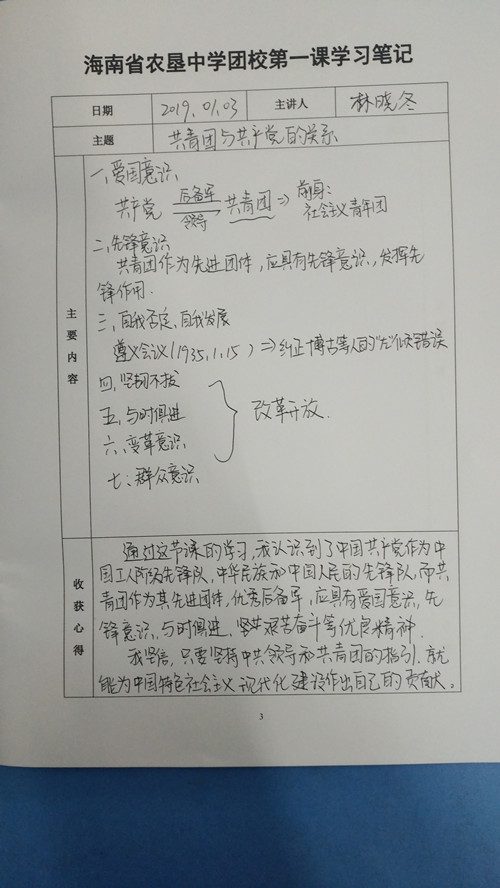 海南省农垦中学团校第一课学习笔记
日期 2019.01.03 主讲人 林晓冬
主题 共青团与共产党的关系
主要内容
一、爱国意识
共产党 后备军 领导 共青团 ⇒ 前身:
社会主义青年团
二、先锋意识
共青团作为先进团体,应具有先锋意识,发挥先
锋作用.
三、自我否定、自我发展
遵义会议(1935.1.15) ⇒ 纠正博古等人的"左"倾错误
四、坚韧不拔
五、与时俱进
六、变革意识
改革开放.
七、群众意识
收获心得
通过这节课的学习,我认识到了中国共产党作为中
国工人阶级先锋队,中华民族和中国人民的先锋队,而共
青团作为其先进团体,优秀后备军,应具有爱国意识,先
锋意识,与时俱进、艰苦奋斗等优良精神.
我坚信,只要坚持中共领导和共青团的指引,就
能为中国特色社会主义现代化建设作出自己的贡献。
3